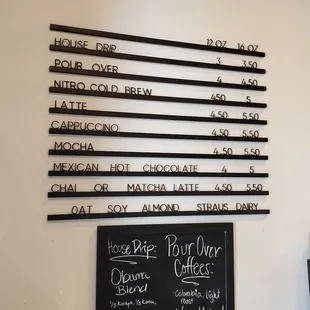 HOUSE DRIP 12 OZ 16 OZ
POUR OVER 3 3.50
NITRO COLD BREW 4 4.50
LATTE 450 5
CAPPUCCINO 4.50 5.50
MOCHA 4.50 5.50
MEXICAN HOT CHOCOLATE 4 5
CHAI OR MATCHA LATTE 4.50 5.50
OAT SOY ALMOND STRAUS DAIRY
House Drip:
Obama
Blend
⅓ Kenya, ⅓ Kona,
Pour Over
Coffees:
Colombia, Light
roast